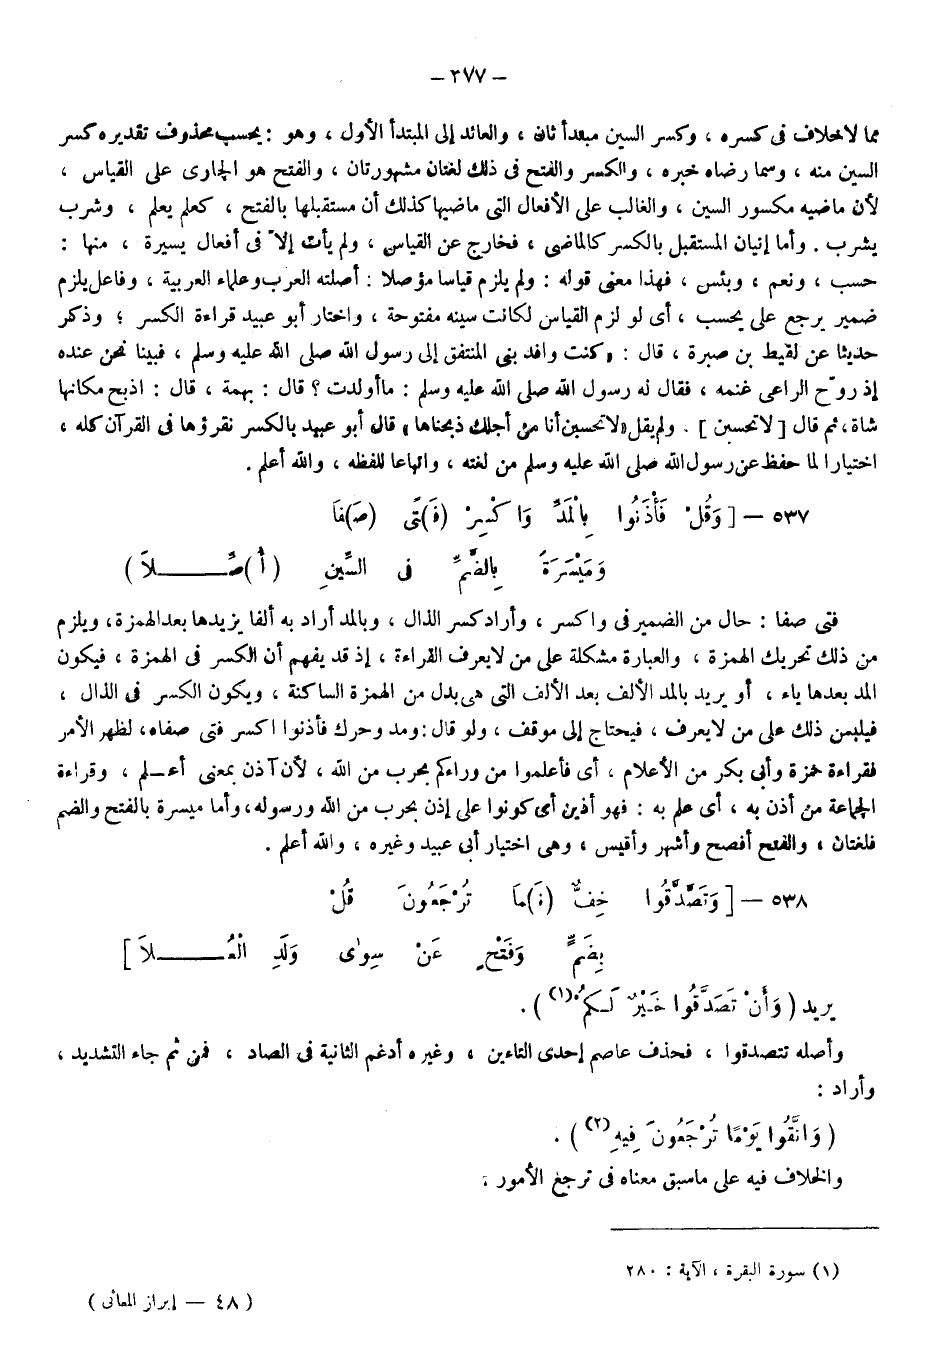 — ٣٧٧ —
مما لاخلاف فى كسره ، وكسر السين مبتدأ ثان ، والعائد إلى المبتدأ الأول ، وهو : يحسب محذوف تقديره كسر
السين منه ، وسما رضاه خبره ، والكسر والفتح فى ذلك لغتان مشهورتان ، والفتح هو الجارى على القياس ،
لأن ماضيه مكسور السين ، والغالب على الأفعال التى ماضيها كذلك أن مستقبلها بالفتح ، كعلم يعلم ، وشرب
يشرب . وأما إتيان المستقبل بالكسر كالماضى ، فخارج عن القياس ، ولم يأت إلاّ فى أفعال يسيرة ، منها :
حسب ، ونعم ، وبئس ، فهذا معنى قوله : ولم يلزم قياسا مؤصلا : أصلته العرب وعلماء العربية ، وفاعل يلزم
ضمير يرجع على يحسب ، أى لو لزم القياس لكانت سينه مفتوحة ، واختار أبو عبيد قراءة الكسر ؛ وذكر
حديثا عن لقيط بن صبرة ، قال : «كنت وافد بنى المنتفق إلى رسول الله صلى الله عليه وسلم ، فبينا نحن عنده
إذ روّح الراعى غنمه ، فقال له رسول الله صلى الله عليه وسلم : ماأولدت ؟ قال : بهمة ، قال : اذبح مكانها
شاة، ثم قال [ لاتحسبن ] . ولم يقل «لاتحسبن أنا من أجلك ذبحناها» قال أبو عبيد بالكسر نقرؤها فى القرآن كله ،
اختيارا لما حفظ عن رسول الله صلى الله عليه وسلم من لغته ، واتباعا للفظه ، والله أعلم .
٥٣٧ — [ وَقُلْ فَأْذَنُوا بِالْمَدِّ وَاكْسِرْ (فَ)تًى (صَ)فَا
وَمَيْسَرَةً بِالضَّمِّ فى السِّينِ (أُ)صِّـــلاَ )
فتى صفا : حال من الضمير فى واكسر ، وأراد كسر الذال ، وبالمد أراد به ألفا يزيدها بعد الهمزة، ويلزم
من ذلك تحريك الهمزة ، والعبارة مشكلة على من لايعرف القراءة ، إذ قد يفهم أن الكسر فى الهمزة ، فيكون
المد بعدها ياء ، أو يريد بالمد الألف بعد الألف التى هى بدل من الهمزة الساكنة ، ويكون الكسر فى الذال ،
فيلبس ذلك على من لايعرف ، فيحتاج إلى موقف ، ولو قال : ومد وحرك فأذنوا اكسر فتى صفاه، لظهر الأمر
فقراءة حمزة وأبى بكر من الأعلام ، أى فأعلموا من وراءكم بحرب من الله ، لأن آذن بمعنى أعـلم ، وقراءة
الجماعة من أذن به ، أى علم به : فهو أذين أى كونوا على إذن بحرب من الله ورسوله، وأما ميسرة بالفتح والضم
فلغتان ، والفتح أفصح وأشهر وأقيس ، وهى اختيار أبى عبيد وغيره ، والله أعلم .
٥٣٨ — [ وَتَصَّدَّقُوا خِفٌّ (نَ)مَا تُرْجَعُونَ قُلْ
بِضَمٍّ وَفَتْحٍ عَنْ سِوٰى وَلَدِ الْعُــــلاَ ]
يريد ( وَأَنْ تَصَدَّقُوا خَيْرٌ لَكُمْ(١) ) .
وأصله تتصدقوا ، فحذف عاصم إحدى التاءين ، وغيره أدغم الثانية فى الصاد ، فمن ثم جاء التشديد ،
وأراد :
( وَاتَّقُوا يَوْمًا تُرْجَعُونَ فِيهِ(٢) ) .
والخلاف فيه على ماسبق معناه فى ترجع الأمور .
(١) سورة البقرة ، الآية : ٢٨٠
( ٤٨ — إبراز المعانى )